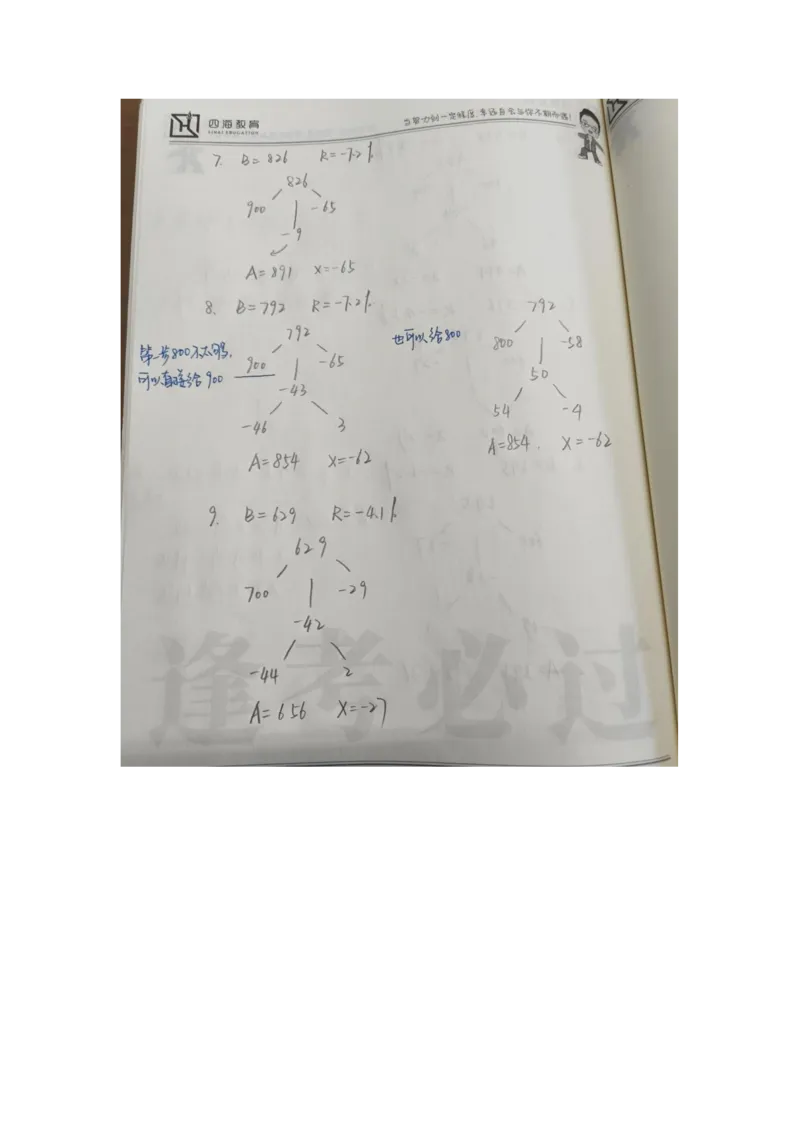 四海教育
SIHAI EDUCATION
7. B=826 R=-7.2%
826
900 -65
-9
A=891 X=-65
8. B=792 R=-7.2%
792
900 -65
-43
-46 3
A=854 X=-62
第一步800不太够,
可以直接给900
也可以给800
792
800 -58
50
54 -4
A=854. X=-62
9. B=629 R=-4.1%
629
700 -29
-42
-44 2
A=656 X=-27
逢考必过